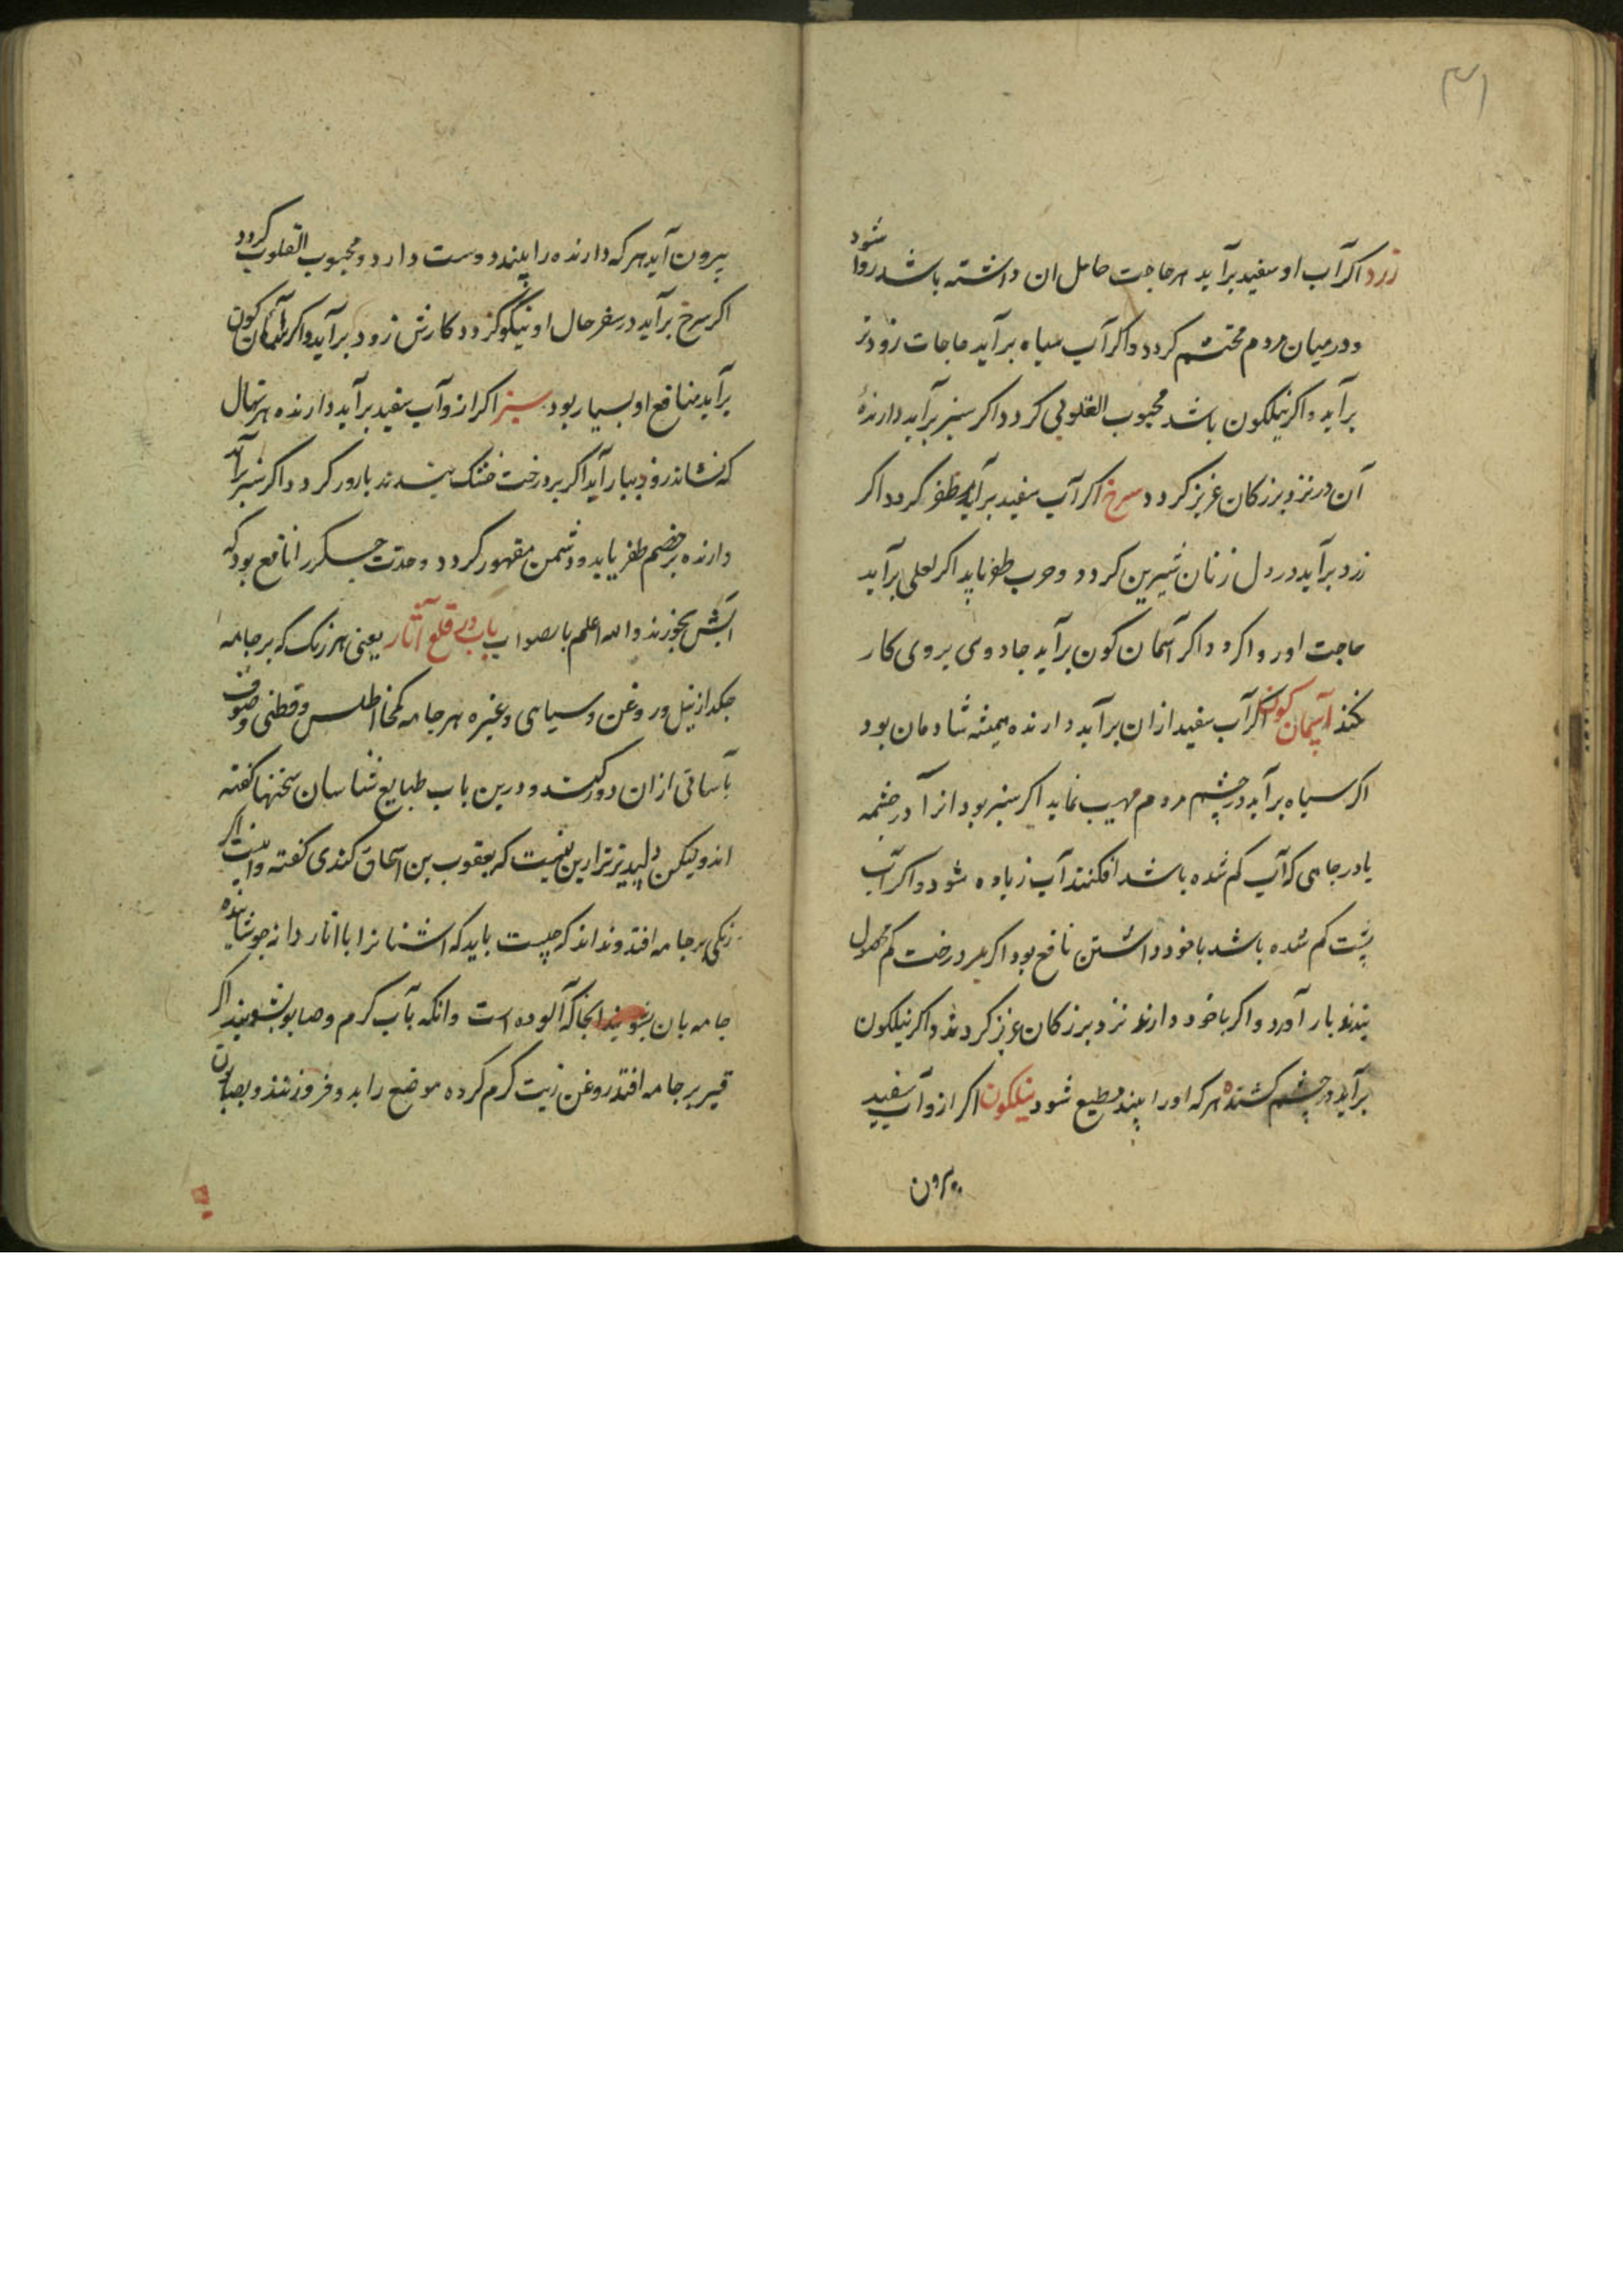 ۳۱
زرد اکر آب او سفید برآید هر حاجت حامل ان داشته باشد روا شود
و در میان مردم محتشم کردد و اکر آب سیاه برآید حاجات زودتر
برآید و اکر نیلکون باشد محبوب القلوب کردد اکر سبز برآید دارندهٔ
آن در نزد بزرکان عزیز کردد سرخ اکر آب سفید برآید مظفر کردد اکر
زرد برآید در دل زنان شیرین کردد و حرب ظفر یابد اکر لعلی برآید
حاجت او روا کردد اکر آسمان کون برآید جادوی بروی کار
نکند آسمان کون اکر آب سفید ازان برآید دارنده همیشه شادمان بود
اکر سیاه برآید در چشم مردم مهیب نماید اکر سبز بود انرا در چشمه
یا در جاهی که آب کم شده باشد افکنند آب زیاده شود و اکر آب
پشت کم شده باشد با خود داشتن نافع بود اکر بر درخت کم محصول
بندند بار آورد و اکر با خود دارند نزد بزرکان عزیز کردند و اکر نیلکون
برآید در چشم کشنده هر که او را بیند مطیع شود نیلکون اکر ازو آب سفید
بیرون
بیرون آید هر که دارنده را بیند دوست دارد و محبوب القلوب کردد
اکر سرخ برآید در سفر حال او نیکو کردد کارش زود برآید و اکر آسمان کون
برآید منافع او بسیار بود سبز اکر ازو آب سفید برآید دارنده هر نهال
که نشاند زود ببار آید اکر بر درخت خشک بندند بارور کردد اکر سبز برآید
دارنده بر خصم ظفر یابد و دشمن مقهور کردد و حدت جکر را نافع بود که
آبش بخورند والله اعلم بالصواب باب در قلع آثار یعنی هر رنک که بر جامه
جکد از نیل و روغن و سیاهی و غیره هر جامه کمخا اطلس و قطنی و صوف
بآسانی ازان دور کنند و درین باب طبایع شناسان سخنها کفته
اند و لیکن دلپدیرتر ازین نیست که یعقوب بن اسحاق کندی کفته و اینست اکر
رنکی بر جامه افتد و نداند که چیست باید که اشنا نرا با انار دانه جوشانیده
جامه بان بشویند انجا که آلوده است وانکه بآب کرم و صابون بشویند اکر
قیر بر جامه افتد روغن زیت کرم کرده موضع را بدو فرو زنند و بصابون